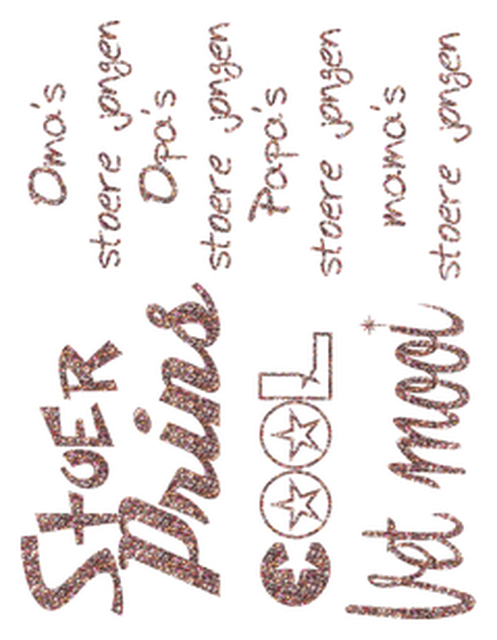 Stoer
Prins
COOL
Vet mooi
Oma's
stoere jongen
Opa's
stoere jongen
Papa's
stoere jongen
mama's
stoere jongen